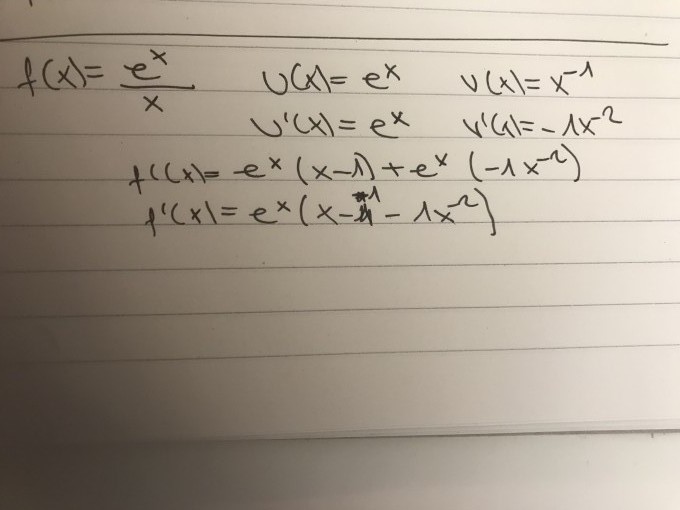 f(x) = e^x / x   U(x) = e^x   V(x) = x^-1
U'(x) = e^x   V'(x) = -1x^-2
f'(x) = e^x (x-1) + e^x (-1x^-2)
f'(x) = e^x (x-1 - 1x^-2)